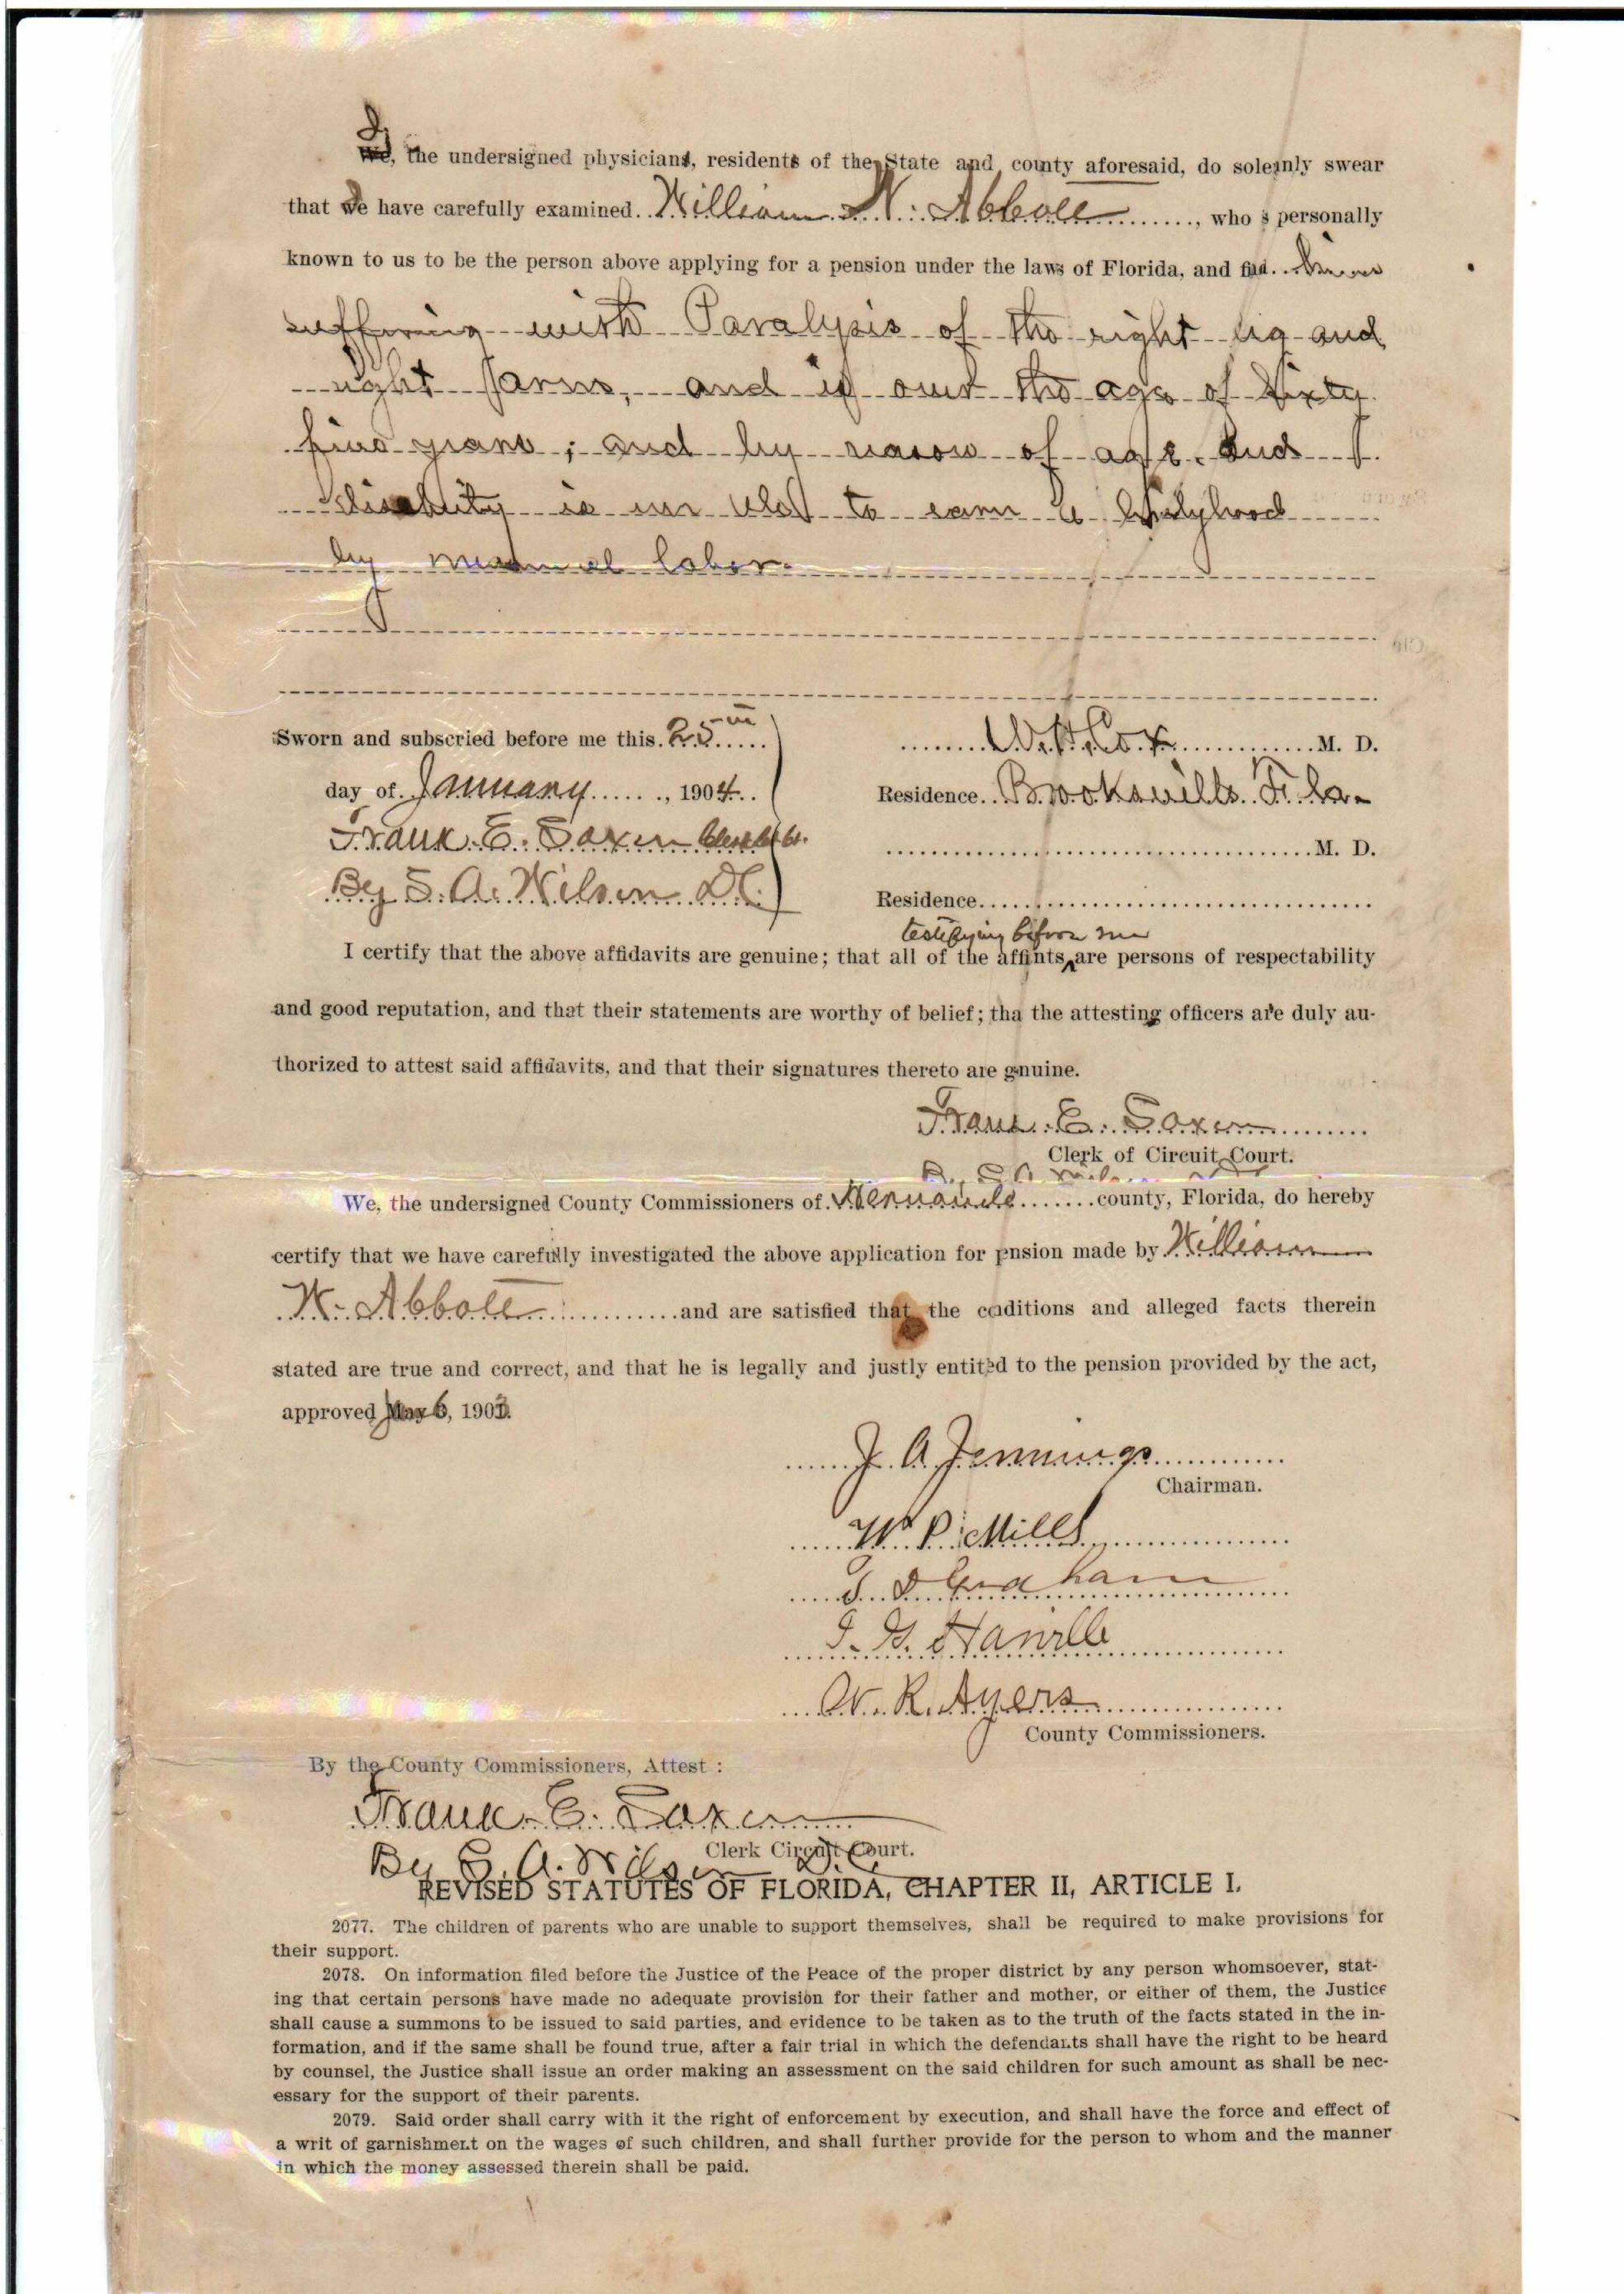 I
We, the undersigned physicians, residents of the State and county aforesaid, do solemnly swear
that I have carefully examined William W. Abbott, who s personally
known to us to be the person above applying for a pension under the laws of Florida, and find him
suffering with Paralysis of the right leg and
right arm, and is over the age of Sixty
five years; and by reason of age and
disability is un able to earn a livelyhood
by manual labor.
Sworn and subscried before me this 25th
day of January, 1904.
Frank E. Saxon Clerk
By S. A. Wilson D.C.
W. H. Cox M. D.
Residence Brooksville Fla.
M. D.
Residence
testifying before me
I certify that the above affidavits are genuine; that all of the affints are persons of respectability
and good reputation, and that their statements are worthy of belief; tha the attesting officers are duly au-
thorized to attest said affidavits, and that their signatures thereto are gnuine.
Frank E. Saxon
Clerk of Circuit Court.
By S A Wilson
We, the undersigned County Commissioners of Hernando county, Florida, do hereby
certify that we have carefully investigated the above application for pnsion made by William
W. Abbott and are satisfied that the coditions and alleged facts therein
stated are true and correct, and that he is legally and justly entitled to the pension provided by the act,
approved 1903.
J. A. Jennings
Chairman.
W P Mills
W. R. Ayers
County Commissioners.
By the County Commissioners, Attest :
Frank E. Saxon
Clerk Circuit Court.
By S. A. Wilson D.C.
REVISED STATUTES OF FLORIDA, CHAPTER II, ARTICLE I.
2077. The children of parents who are unable to support themselves, shall be required to make provisions for
their support.
2078. On information filed before the Justice of the Peace of the proper district by any person whomsoever, stat-
ing that certain persons have made no adequate provision for their father and mother, or either of them, the Justice
shall cause a summons to be issued to said parties, and evidence to be taken as to the truth of the facts stated in the in-
formation, and if the same shall be found true, after a fair trial in which the defendants shall have the right to be heard
by counsel, the Justice shall issue an order making an assessment on the said children for such amount as shall be nec-
essary for the support of their parents.
2079. Said order shall carry with it the right of enforcement by execution, and shall have the force and effect of
a writ of garnishment on the wages of such children, and shall further provide for the person to whom and the manner
in which the money assessed therein shall be paid.